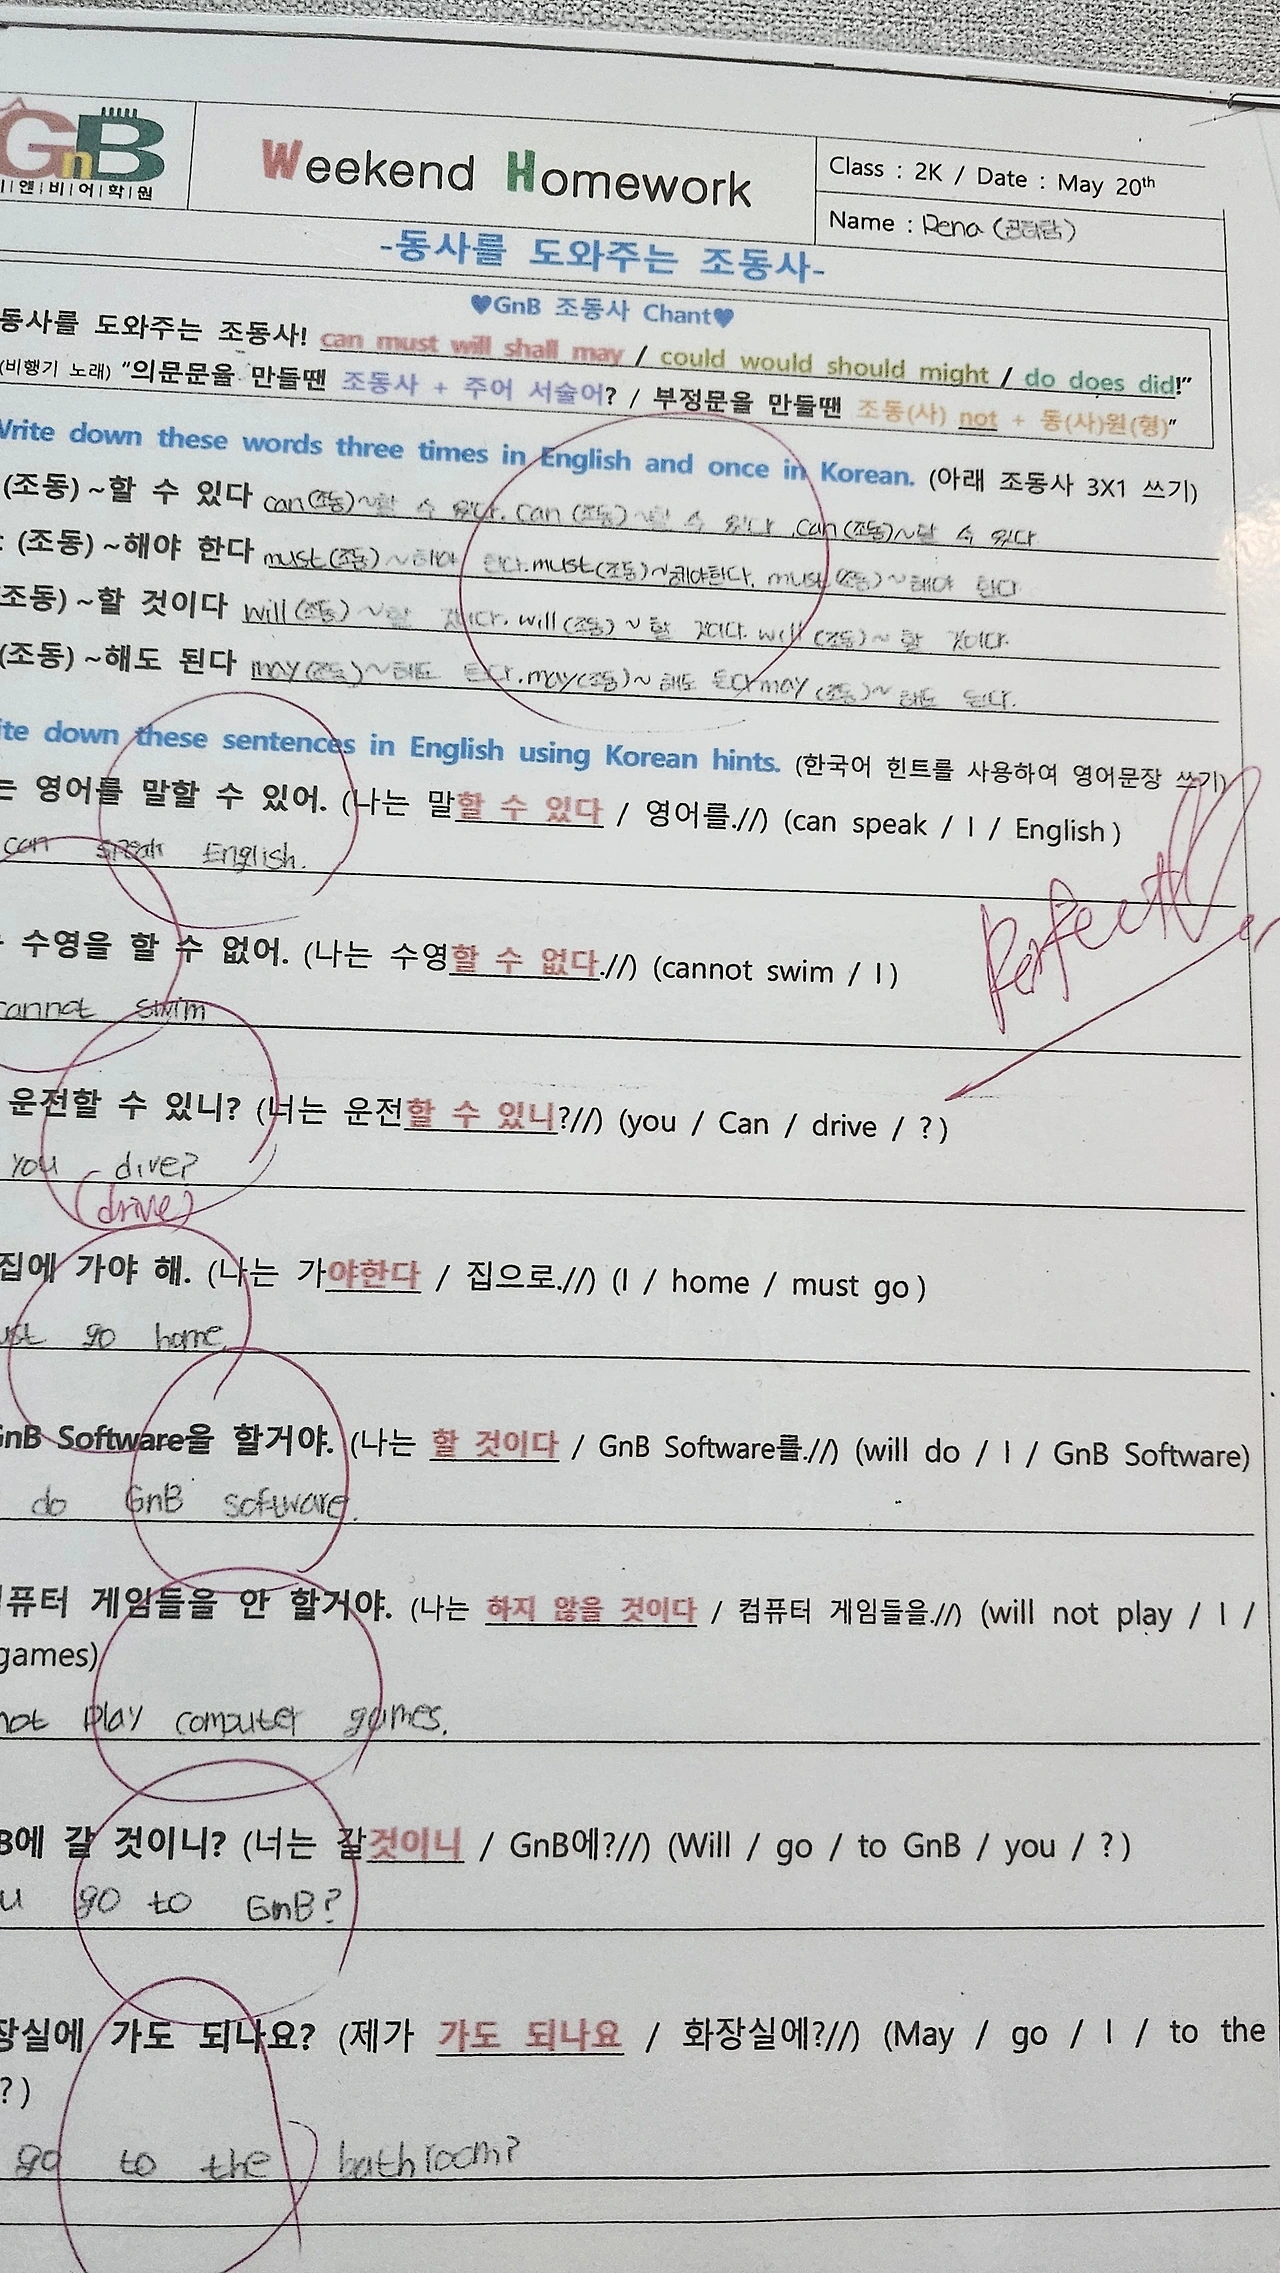 GnB
앤|비|어|학|원
Weekend Homework
Class : 2K / Date : May 20th
Name : Rena
-동사를 도와주는 조동사-
♥GnB 조동사 Chant♥
동사를 도와주는 조동사! can must will shall may / could would should might / do does did!"
(비행기 노래) "의문문을 만들땐 조동사 + 주어 서술어? / 부정문을 만들땐 조동(사) not + 동(사)원(형)"
Write down these words three times in English and once in Korean. (아래 조동사 3X1 쓰기)
(조동) ~할 수 있다 can(조동)~할 수 있다. can (조동) ~할 수 있다. can (조동)~할 수 있다.
(조동) ~해야 한다 must(조동) ~해야 한다. must(조동)~해야한다. must (조동) ~해야 한다
(조동) ~할 것이다 will(조동) ~할 것이다. will(조동) ~할 것이다. will (조동)~ 할 것이다.
(조동) ~해도 된다 may(조동)~해도 된다. may(조동)~해도 된다 may (조동)~ 해도 된다.
down these sentences in English using Korean hints. (한국어 힌트를 사용하여 영어문장 쓰기)
는 영어를 말할 수 있어. (나는 말할 수 있다 / 영어를.//) (can speak / I / English )
can speak English.
Perfect
수영을 할 수 없어. (나는 수영할 수 없다.//) (cannot swim / I )
cannot swim
운전할 수 있니? (너는 운전할 수 있니?//) (you / Can / drive / ? )
you dive?
(drive)
집에 가야 해. (나는 가야한다 / 집으로.//) (I / home / must go )
go home.
GnB Software을 할거야. (나는 할 것이다 / GnB Software를.//) (will do / I / GnB Software)
do GnB software.
퓨터 게임들을 안 할거야. (나는 하지 않을 것이다 / 컴퓨터 게임들을.//) (will not play / I /
games)
not play computer games.
에 갈 것이니? (너는 갈것이니 / GnB에?//) (Will / go / to GnB / you / ? )
go to GnB?
장실에 가도 되나요? (제가 가도 되나요 / 화장실에?//) (May / go / I / to the
? )
go to the bathroom?